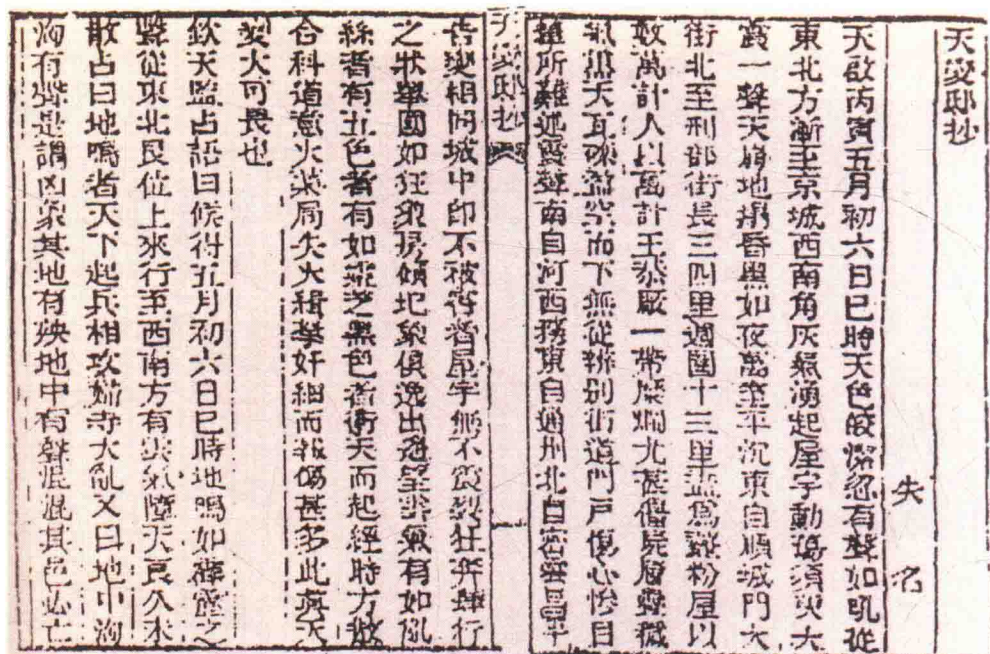 天變邸抄
失名
天啟丙寅五月初六日巳時天色皎潔忽有聲如吼從
東北方漸至京城西南角灰氣湧起屋宇動蕩須臾大
震一聲天崩地塌昏黑如夜萬室平沉東自順城門大
街北至刑部街長三四里週圍十三里盡為齏粉屋以
數萬計人以萬計王恭廠一帶糜爛尤甚僵屍層疊穢
氣熏天瓦礫盈空而下無從辨別街道門戶傷心慘目
筆所難述震聲南自河西務東自通州北自密雲昌平
天變邸抄
告變相同城中即不被害者屋宇無不震裂狂奔肆行
之狀舉國如狂象房傾圮象俱逸出遙望雲氣有如亂
絲者有五色者有如靈芝黑色者衝天而起經時方散
合科道意火藥局失火緝拏奸細而報傷甚多此真天
變大可畏也
欽天監占語曰候得五月初六日巳時地鳴如霹靂之
聲從東北艮位上來行至西南方有雲氣障天良久未
散占曰地鳴者天下起兵相攻婦寺大亂又曰地中洶
洶有聲是謂凶象其地有殃地中有聲混混其邑必亡